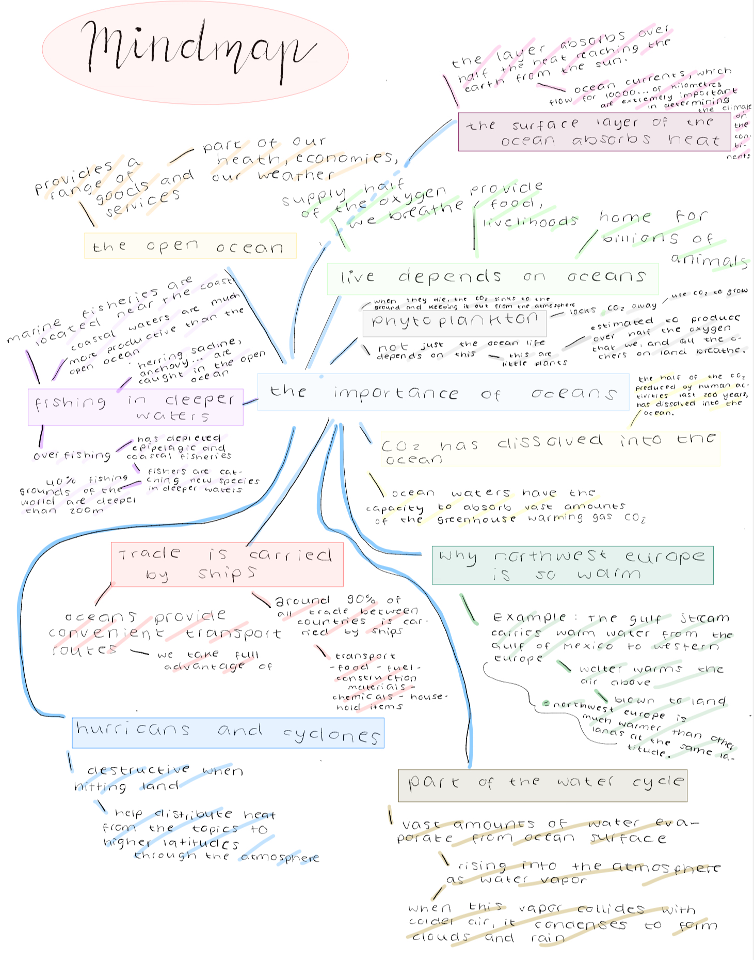 Mindmap
the layer absorbs over
half the heat reaching the
earth from the sun.
ocean currents, which
flow for 10000... of kilometres
are extremely important
in determining
the climate
of
the
con-
ti-
nents
the surface layer of the
ocean absorbs heat
provides a
range of
goods and
services
part of our
heath, economies,
our weather
the open ocean
supply half
of the oxygen
we breathe
provide
food,
livelihoods
home for
billions of
animals
live depends on oceans
when they die, the CO2 sinks to the
ground and keeping it out from the atmosphere
phytoplankton
locks CO2 away
use CO2 to grow
not just the ocean life
depends on this
this are
little plants
estimated to produce
over half the oxygen
that we, and all the o-
thers on land breathe.
marine fisheries are
located near the coast
coastal waters are much
more productive than the
open ocean
herring sacline,
anchovy... are
caught in the open
ocean
fishing in deeper
waters
over fishing
has depleted
epipelagic and
coastal fisheries
40% fishing
grounds of the
world are deeper
than 200m
fishers are cat-
ching new species
in deeper waters
the importance of oceans
the half of the CO2
produced by human ac-
tivities last 200 years,
has dissolved into the
ocean.
CO2 has dissolved into the
ocean
ocean waters have the
capacity to absorb vast amounts
of the greenhouse warming gas CO2
Trade is carried
by ships
oceans provide
convenient transport
routes
we take full
advantage of
around 90% of
all trade between
countries is car-
ried by ships
transport
-food - fuel -
construction
materials -
chemicals - house-
hold items
why northwest europe
is so warm
Example: The gulf Stream
carries warm water from the
Gulf of Mexico to western
europe
water warms the
air above
blown to land
northwest europe is
much warmer than other
lands at the same la-
titude.
hurricans and cyclones
destructive when
hitting land
help distribute heat
from the topics to
higher latitudes
through the atmosphere
part of the water cycle
vast amounts of water eva-
porate from ocean surface
rising into the atmosphere
as water vapor
when this vapor collides with
colder air, it condenses to form
clouds and rain